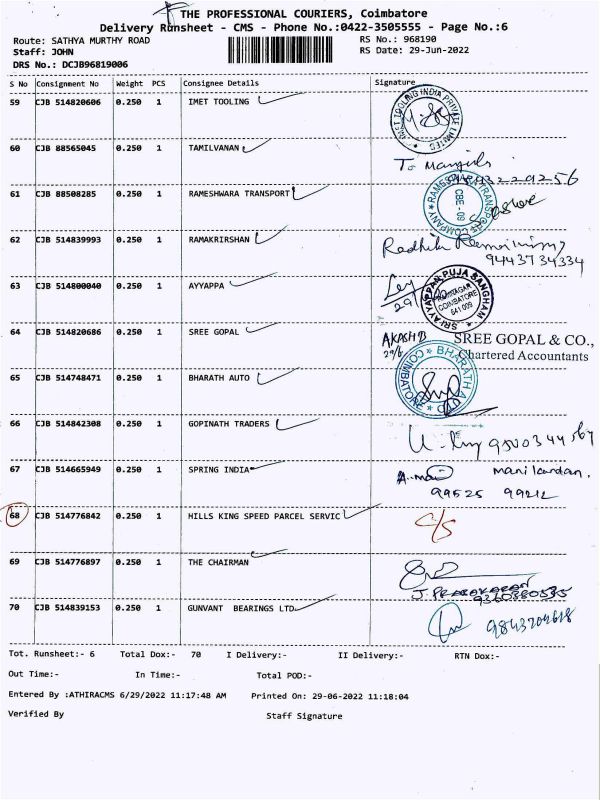 THE PROFESSIONAL COURIERS, Coimbatore
Delivery Runsheet - CMS - Phone No.:0422-3505555 - Page No.:6
Route: SATHYA MURTHY ROAD RS No.: 968190
Staff: JOHN RS Date: 29-Jun-2022
DRS No.: DCJB96819006
S No Consignment No Weight PCS Consignee Details Signature
59 CJB 514820606 0.250 1 IMET TOOLING
IMET TOOLING INDIA PRIVATE LIMITED
60 CJB 88565045 0.250 1 TAMILVANAN
61 CJB 88508285 0.250 1 RAMESHWARA TRANSPORT
CBE - 09
62 CJB 514839993 0.250 1 RAMAKRIRSHAN
Radhika
9443734334
63 CJB 514800040 0.250 1 AYYAPPA
SRI AYYAPPAN PUJA SANGHAM
COIMBATORE
641 009
64 CJB 514820686 0.250 1 SREE GOPAL
AKASH B SREE GOPAL & CO.,
29/6 Chartered Accountants
65 CJB 514748471 0.250 1 BHARATH AUTO
66 CJB 514842308 0.250 1 GOPINATH TRADERS
67 CJB 514665949 0.250 1 SPRING INDIA
99525 99212
68 CJB 514776842 0.250 1 HILLS KING SPEED PARCEL SERVIC
C/S
69 CJB 514776897 0.250 1 THE CHAIRMAN
J. PRABAKARAN
70 CJB 514839153 0.250 1 GUNVANT BEARINGS LTD
Tot. Runsheet:- 6 Total Dox:- 70 I Delivery:- II Delivery:- RTN Dox:-
Out Time:- In Time:- Total POD:-
Entered By :ATHIRACMS 6/29/2022 11:17:48 AM Printed On: 29-06-2022 11:18:04
Verified By Staff Signature